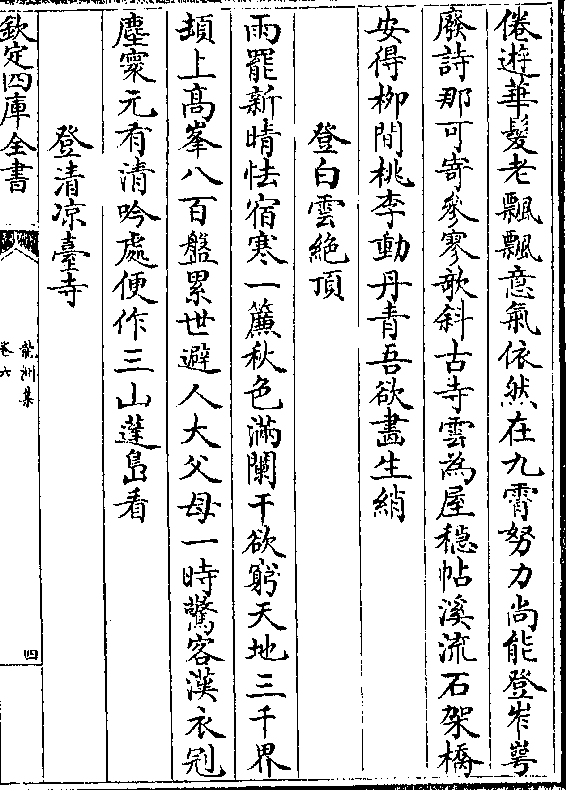 倦遊華髮老飄飄意氣依然在九霄努力尚能登岝崿
廢詩那可寄參寥欹斜古寺雲為屋穩帖溪流石架橋
安得柳間桃李動丹青吾欲畫生綃
登白雲絶頂
雨罷新晴怯宿寒一簾秋色滿闌干欲窮天地三千界
頭上髙峯八百盤累世避人大父母一時驚客漢衣冠
塵寰元有清吟處便作三山蓬島看
登清凉臺寺
欽定四庫全書
龍洲集
卷六
四